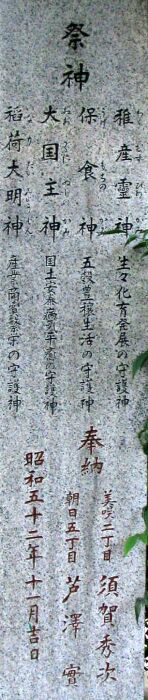 祭神
稚産霊神 生々化育発展の守護神
保食神 五穀豊穣生活の守護神
大国主神 国土安泰病気平癒の守護神
稲荷大明神 産業商売繁栄の守護神
奉納
美咲二丁目 須賀秀次
朝日五丁目 芦澤實
昭和五十二年十一月吉日